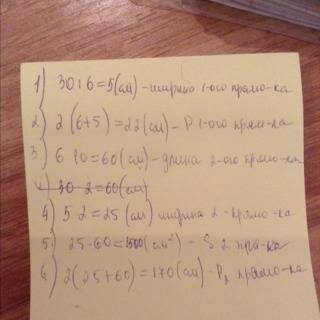 1) 30:6=5(см) - ширина 1-ого прямо-ка
2) 2(6+5)=22(см) - P 1-ого прям-ка
3) 6·10=60(см) - длина 2-ого прямо-ка
30·2=60(см)
4) 5·2=25(см) ширина 2-прямо-ка
5) 25·60=1500(см²) - S 2 пря-ка
6) 2(25+60)=170(см) - P₂ прямо-ка